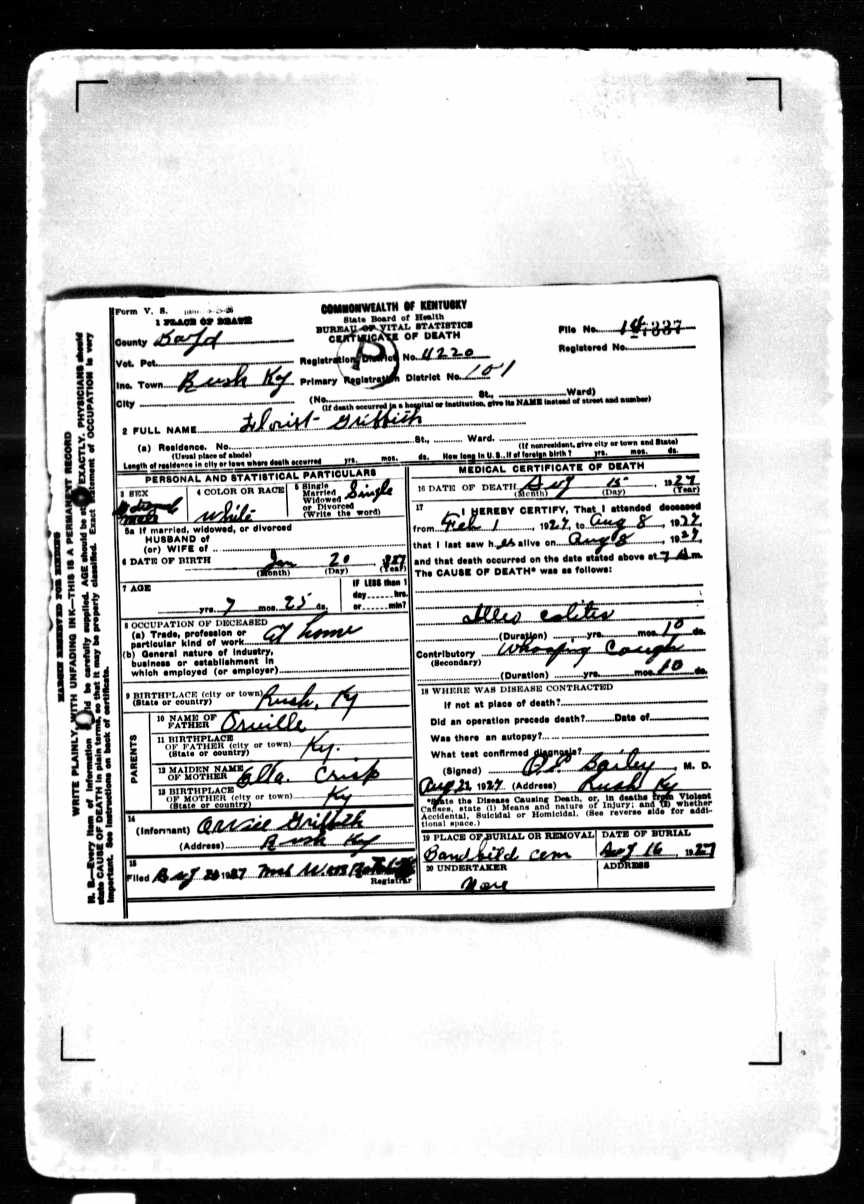 Form V. S.
1 PLACE OF DEATH
COMMONWEALTH OF KENTUCKY
State Board of Health
BUREAU OF VITAL STATISTICS
CERTIFICATE OF DEATH
File No.
Registered No.
County Boyd
Vot. Pct.
Registration District No. 4220
Inc. Town Rush Ky
Primary Registration District No. 101
City
(No. St., Ward)
(If death occurred in a hospital or institution, give its NAME instead of street and number)
2 FULL NAME Florist Griffith
(a) Residence. No. St., Ward.
(Usual place of abode) (If nonresident, give city or town and State)
Length of residence in city or town where death occurred yrs. mos. ds. How long in U. S., if of foreign birth? yrs. mos. ds.
PERSONAL AND STATISTICAL PARTICULARS
3 SEX
male
4 COLOR OR RACE
White
5 Single
Married
Widowed
or Divorced
(Write the word)
Single
5a If married, widowed, or divorced
HUSBAND of
(or) WIFE of
6 DATE OF BIRTH Jan 20
(Month) (Day) (Year)
7 AGE
yrs. 7 mos. 25 ds.
IF LESS than 1
day hrs.
or min?
8 OCCUPATION OF DECEASED
(a) Trade, profession or
particular kind of work at home
(b) General nature of industry,
business or establishment in
which employed (or employer)
9 BIRTHPLACE (city or town) Rush, Ky
(State or country)
PARENTS
10 NAME OF
FATHER Orville
11 BIRTHPLACE
OF FATHER (city or town) Ky.
(State or country)
12 MAIDEN NAME
OF MOTHER Crisp
13 BIRTHPLACE
OF MOTHER (city or town) Ky
(State or country)
14
(Informant) Griffith
(Address) Rush Ky
15
Filed 1927
Registrar
MEDICAL CERTIFICATE OF DEATH
16 DATE OF DEATH Aug 15, 1927
(Month) (Day) (Year)
17
I HEREBY CERTIFY, That I attended deceased
from Feb 1, 1927, to Aug 8, 1927,
that I last saw h alive on Aug 8, 1927,
and that death occurred on the date stated above at 7 m.
The CAUSE OF DEATH* was as follows:
Illeo colites
(Duration) yrs. mos. 10 ds.
Contributory Whooping Cough
(Secondary)
(Duration) yrs. mos. 10 ds.
18 WHERE WAS DISEASE CONTRACTED
If not at place of death?
Did an operation precede death? Date of
Was there an autopsy?
What test confirmed diagnosis?
(Signed) Bailey, M. D.
Aug 22, 1927 (Address) Rush Ky
*State the Disease Causing Death, or, in deaths from Violent
Causes, state (1) Means and nature of Injury; and (2) whether
Accidental, Suicidal or Homicidal. (See reverse side for addi-
tional space.)
19 PLACE OF BURIAL OR REMOVAL
cem
DATE OF BURIAL
Aug 16, 1927
20 UNDERTAKER
None
ADDRESS
MARGIN RESERVED FOR BINDING
WRITE PLAINLY, WITH UNFADING INK—THIS IS A PERMANENT RECORD
N. B.—Every item of information should be carefully supplied. AGE should be stated EXACTLY. PHYSICIANS should
state CAUSE OF DEATH in plain terms, so that it may be properly classified. Exact statement of OCCUPATION is very
important. See instructions on back of certificate.